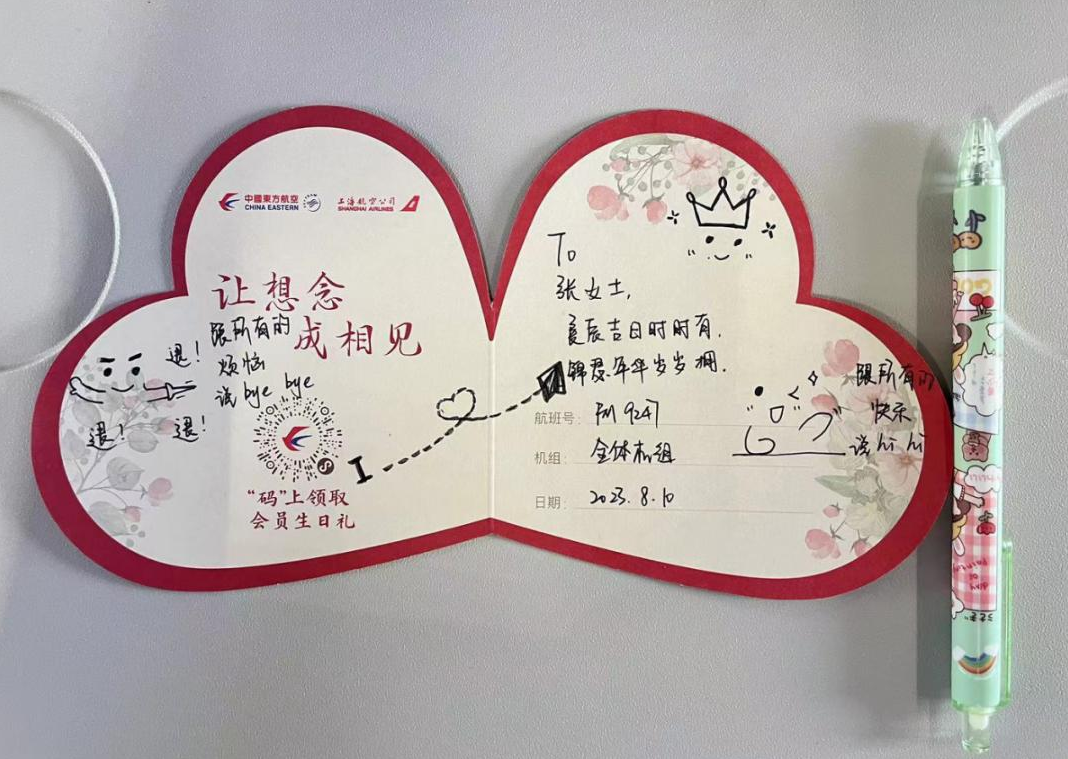 中國東方航空
CHINA EASTERN
上海航空公司
SHANGHAI AIRLINES
让想念
成相见
跟所有的
烦恼
说bye bye
退!
退!
退!
"码"上领取
会员生日礼
I
To
张女士,
良辰吉日时时有.
锦瑟年华岁岁拥.
航班号: FM 9247
机组: 全体机组
日期: 2023.8.10
跟所有的
快乐
说hi hi